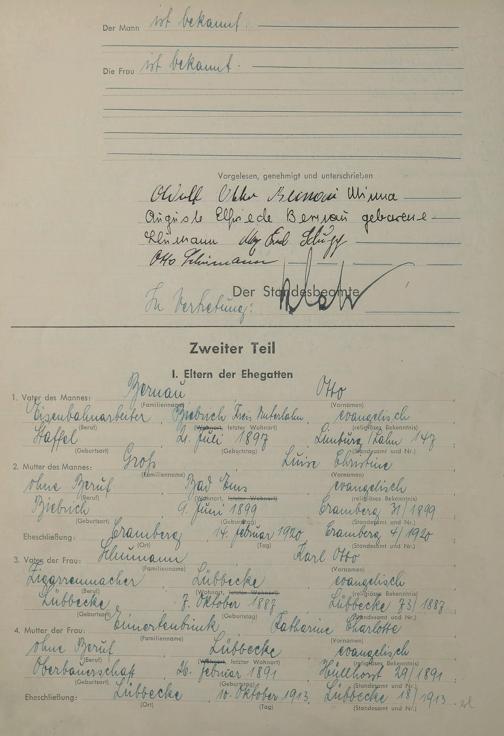 Der Mann ist bekannt.
Die Frau ist bekannt.
Vorgelesen, genehmigt und unterschrieben
Adolf Otto Bernau Minna
Auguste Elfriede Bernau geborene
Schumann
Otto Schumann
Der Standesbeamte
In Vertretung:
Zweiter Teil
I. Eltern der Ehegatten
1. Vater des Mannes: Bernau Otto
(Familienname) (Vornamen)
Eisenbahnarbeiter, Biebrich Kreis Unterlahn, evangelisch
(Beruf) (Wohnort, letzter Wohnort) (religiöses Bekenntnis)
Staffel, 21. Juli 1897, Limburg/Lahn 147
(Geburtsort) (Geburtstag) (Standesamt und Nr.)
2. Mutter des Mannes: Groß Luise Christine
(Familienname) (Vornamen)
ohne Beruf, Bad Ems, evangelisch
(Beruf) (Wohnort, letzter Wohnort) (religiöses Bekenntnis)
Biebrich, 9. Juni 1899, Cramberg 31/1899
(Geburtsort) (Geburtstag) (Standesamt und Nr.)
Eheschließung: Cramberg, 14. Februar 1920, Cramberg 4/1920
(Ort) (Tag) (Standesamt und Nr.)
3. Vater der Frau: Schumann Karl Otto
(Familienname) (Vornamen)
Zigarrenmacher, Lübbecke, evangelisch
(Beruf) (Wohnort, letzter Wohnort) (religiöses Bekenntnis)
Lübbecke, 7. Oktober 1887, Lübbecke 73/1887
(Geburtsort) (Geburtstag) (Standesamt und Nr.)
4. Mutter der Frau: Katharine Charlotte
(Familienname) (Vornamen)
ohne Beruf, Lübbecke, evangelisch
(Beruf) (Wohnort, letzter Wohnort) (religiöses Bekenntnis)
Oberbauerschaft, 26. Februar 1891, Hüllhorst 29/1891
(Geburtsort) (Geburtstag) (Standesamt und Nr.)
Eheschließung: Lübbecke, 10. Oktober 1913, Lübbecke 18/1913.
(Ort) (Tag) (Standesamt und Nr.)